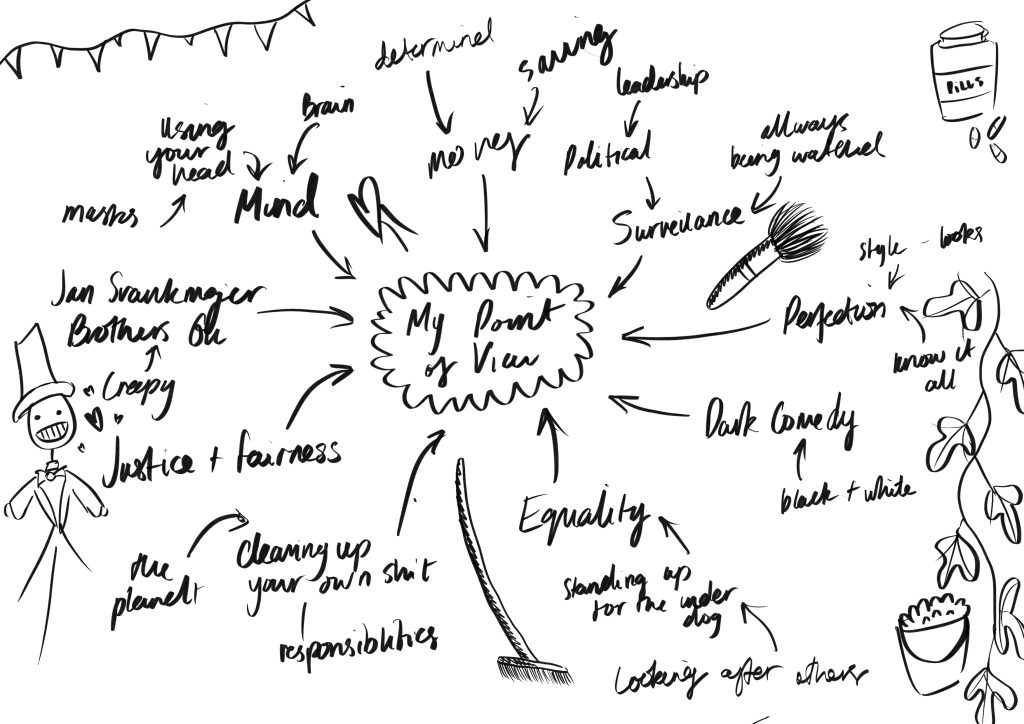 determined
saving
leadership
Brain
money
Political
allways
being watched
PILLS
using
your
head
masks
Mind
Surveilance
style - looks
Jan Svankmajer
Brothers
Creepy
My Point
of View
Perfection
know it
all
Dark Comedy
black + white
Justice + fairness
Equality
the
planet
Cleaning up
your own shit
responsibilities
standing up
for the under
dog
Looking after others